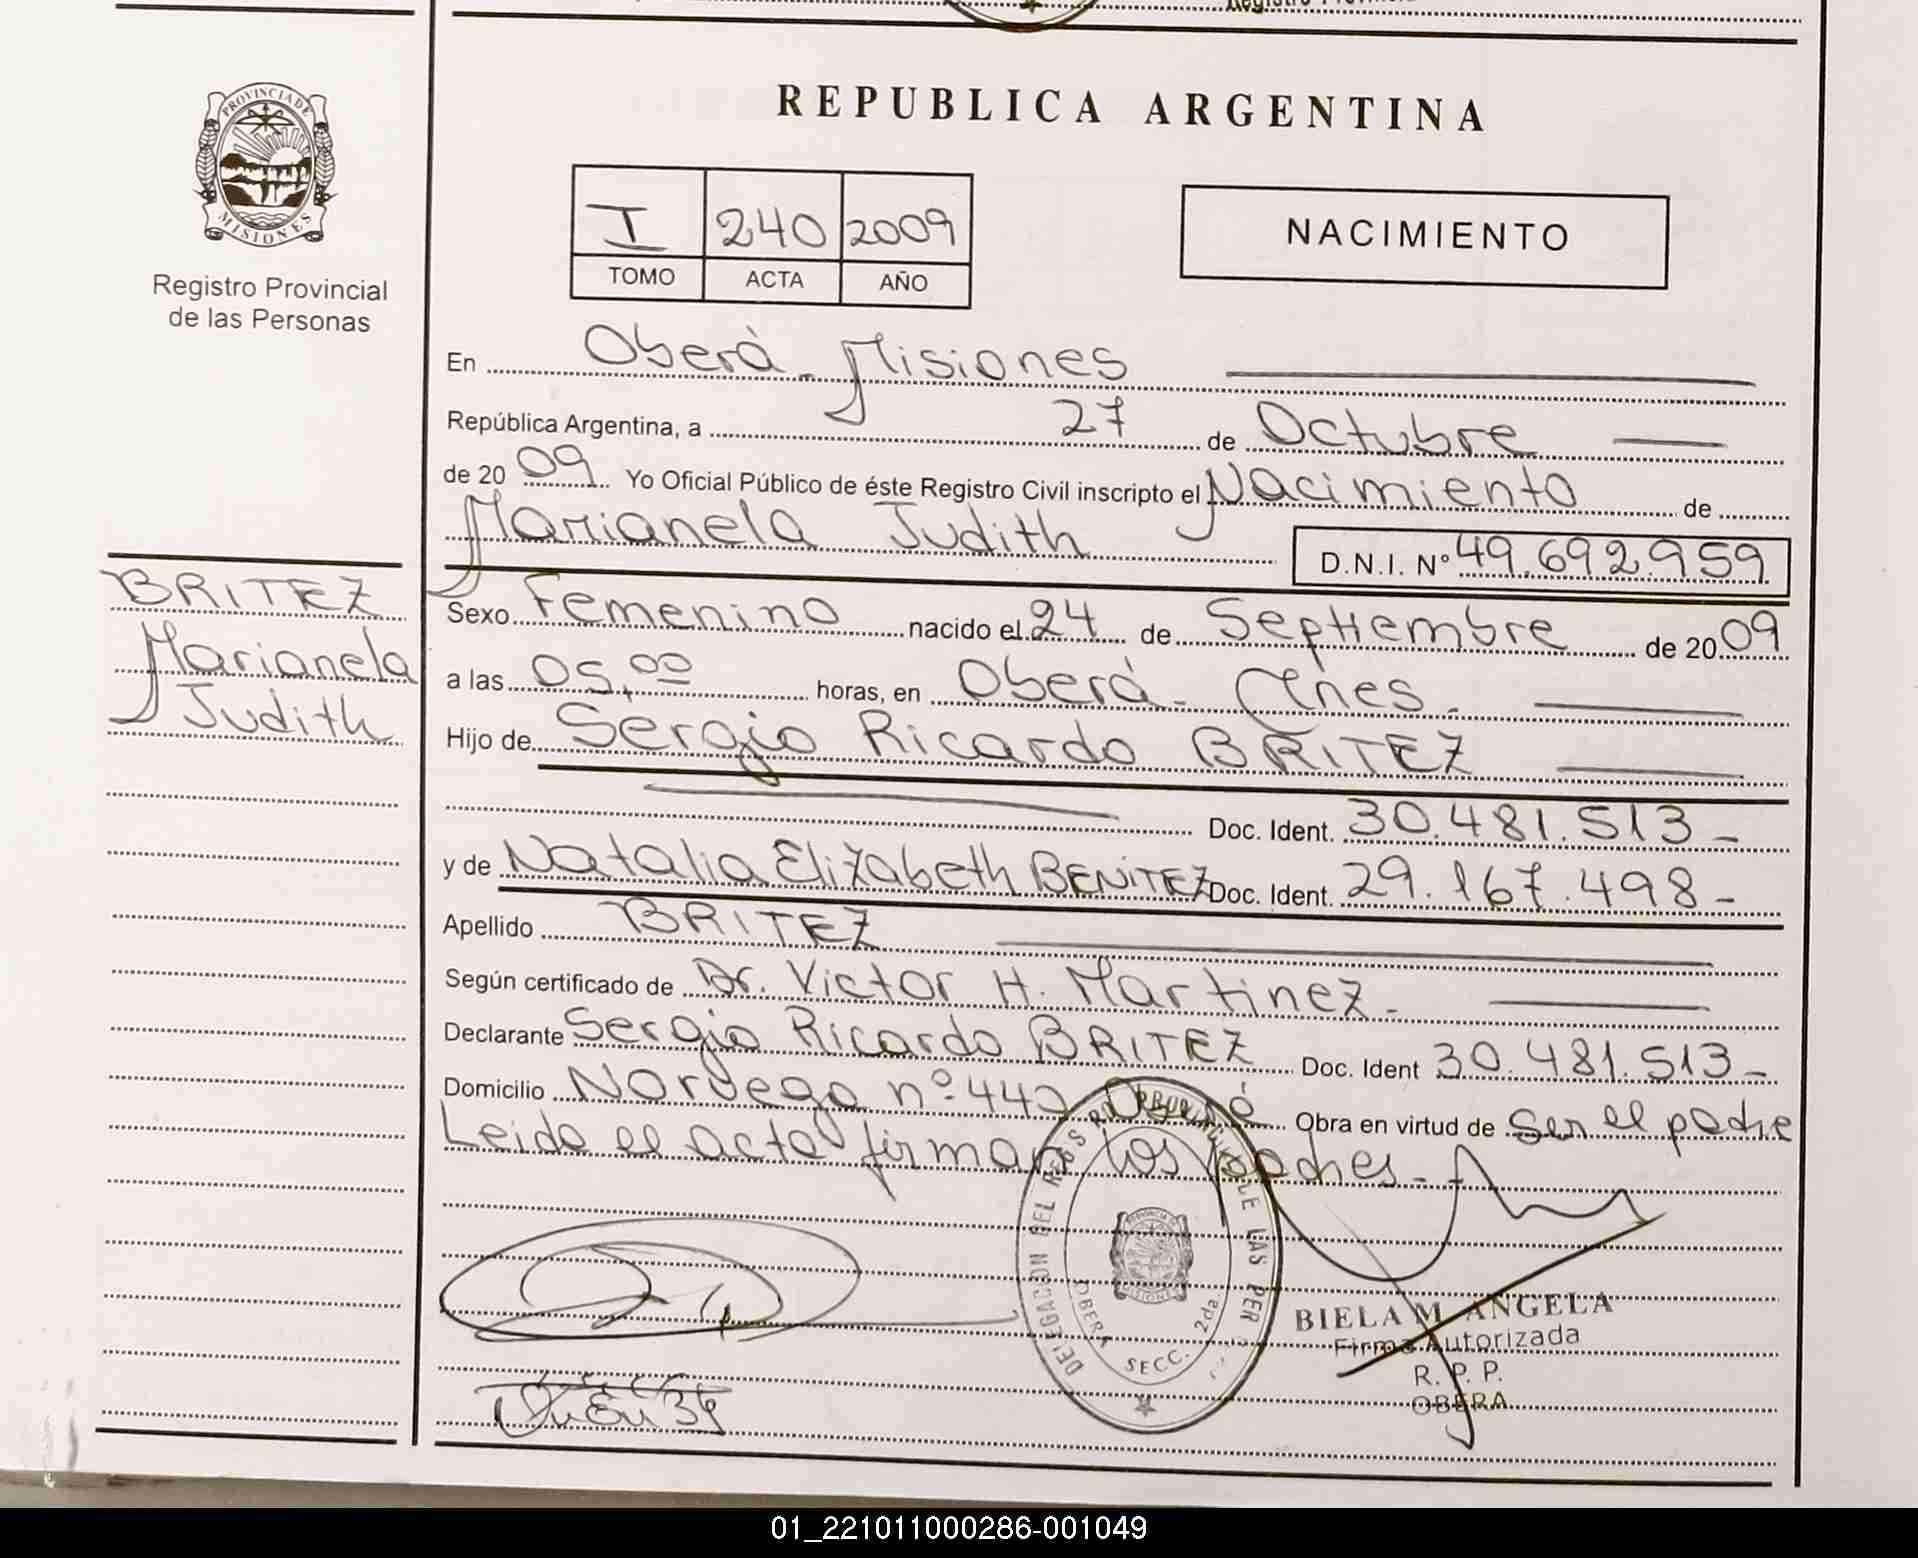 REPUBLICA ARGENTINA
PROVINCIA DE MISIONES
Registro Provincial
de las Personas
I 240 2009
TOMO ACTA AÑO
NACIMIENTO
En Oberá - Misiones
República Argentina, a 27 de Octubre
de 2009 Yo Oficial Público de éste Registro Civil inscripto el Nacimiento de
Marianela Judith D.N.I. Nº 49.692.959
BRITEZ
Marianela
Judith
Sexo Femenino nacido el 24 de Septiembre de 2009
a las 05,00 horas, en Oberá - Mnes.
Hijo de Sergio Ricardo BRITEZ
Doc. Ident. 30.481.513 -
y de Natalia Elizabeth BENITEZ Doc. Ident. 29.167.498 -
Apellido BRITEZ
Según certificado de Dr. Victor H. Martinez -
Declarante Sergio Ricardo BRITEZ Doc. Ident 30.481.513 -
Domicilio Noruega nº 440 Oberá Obra en virtud de Ser el padre
Leida el acta firman los padres -
DELEGACION DEL REGISTRO PROVINCIAL DE LAS PER
OBERA SECC. 2da
BIELA M. ANGELA
Firma Autorizada
R. P. P.
OBERA
01_221011000286-001049